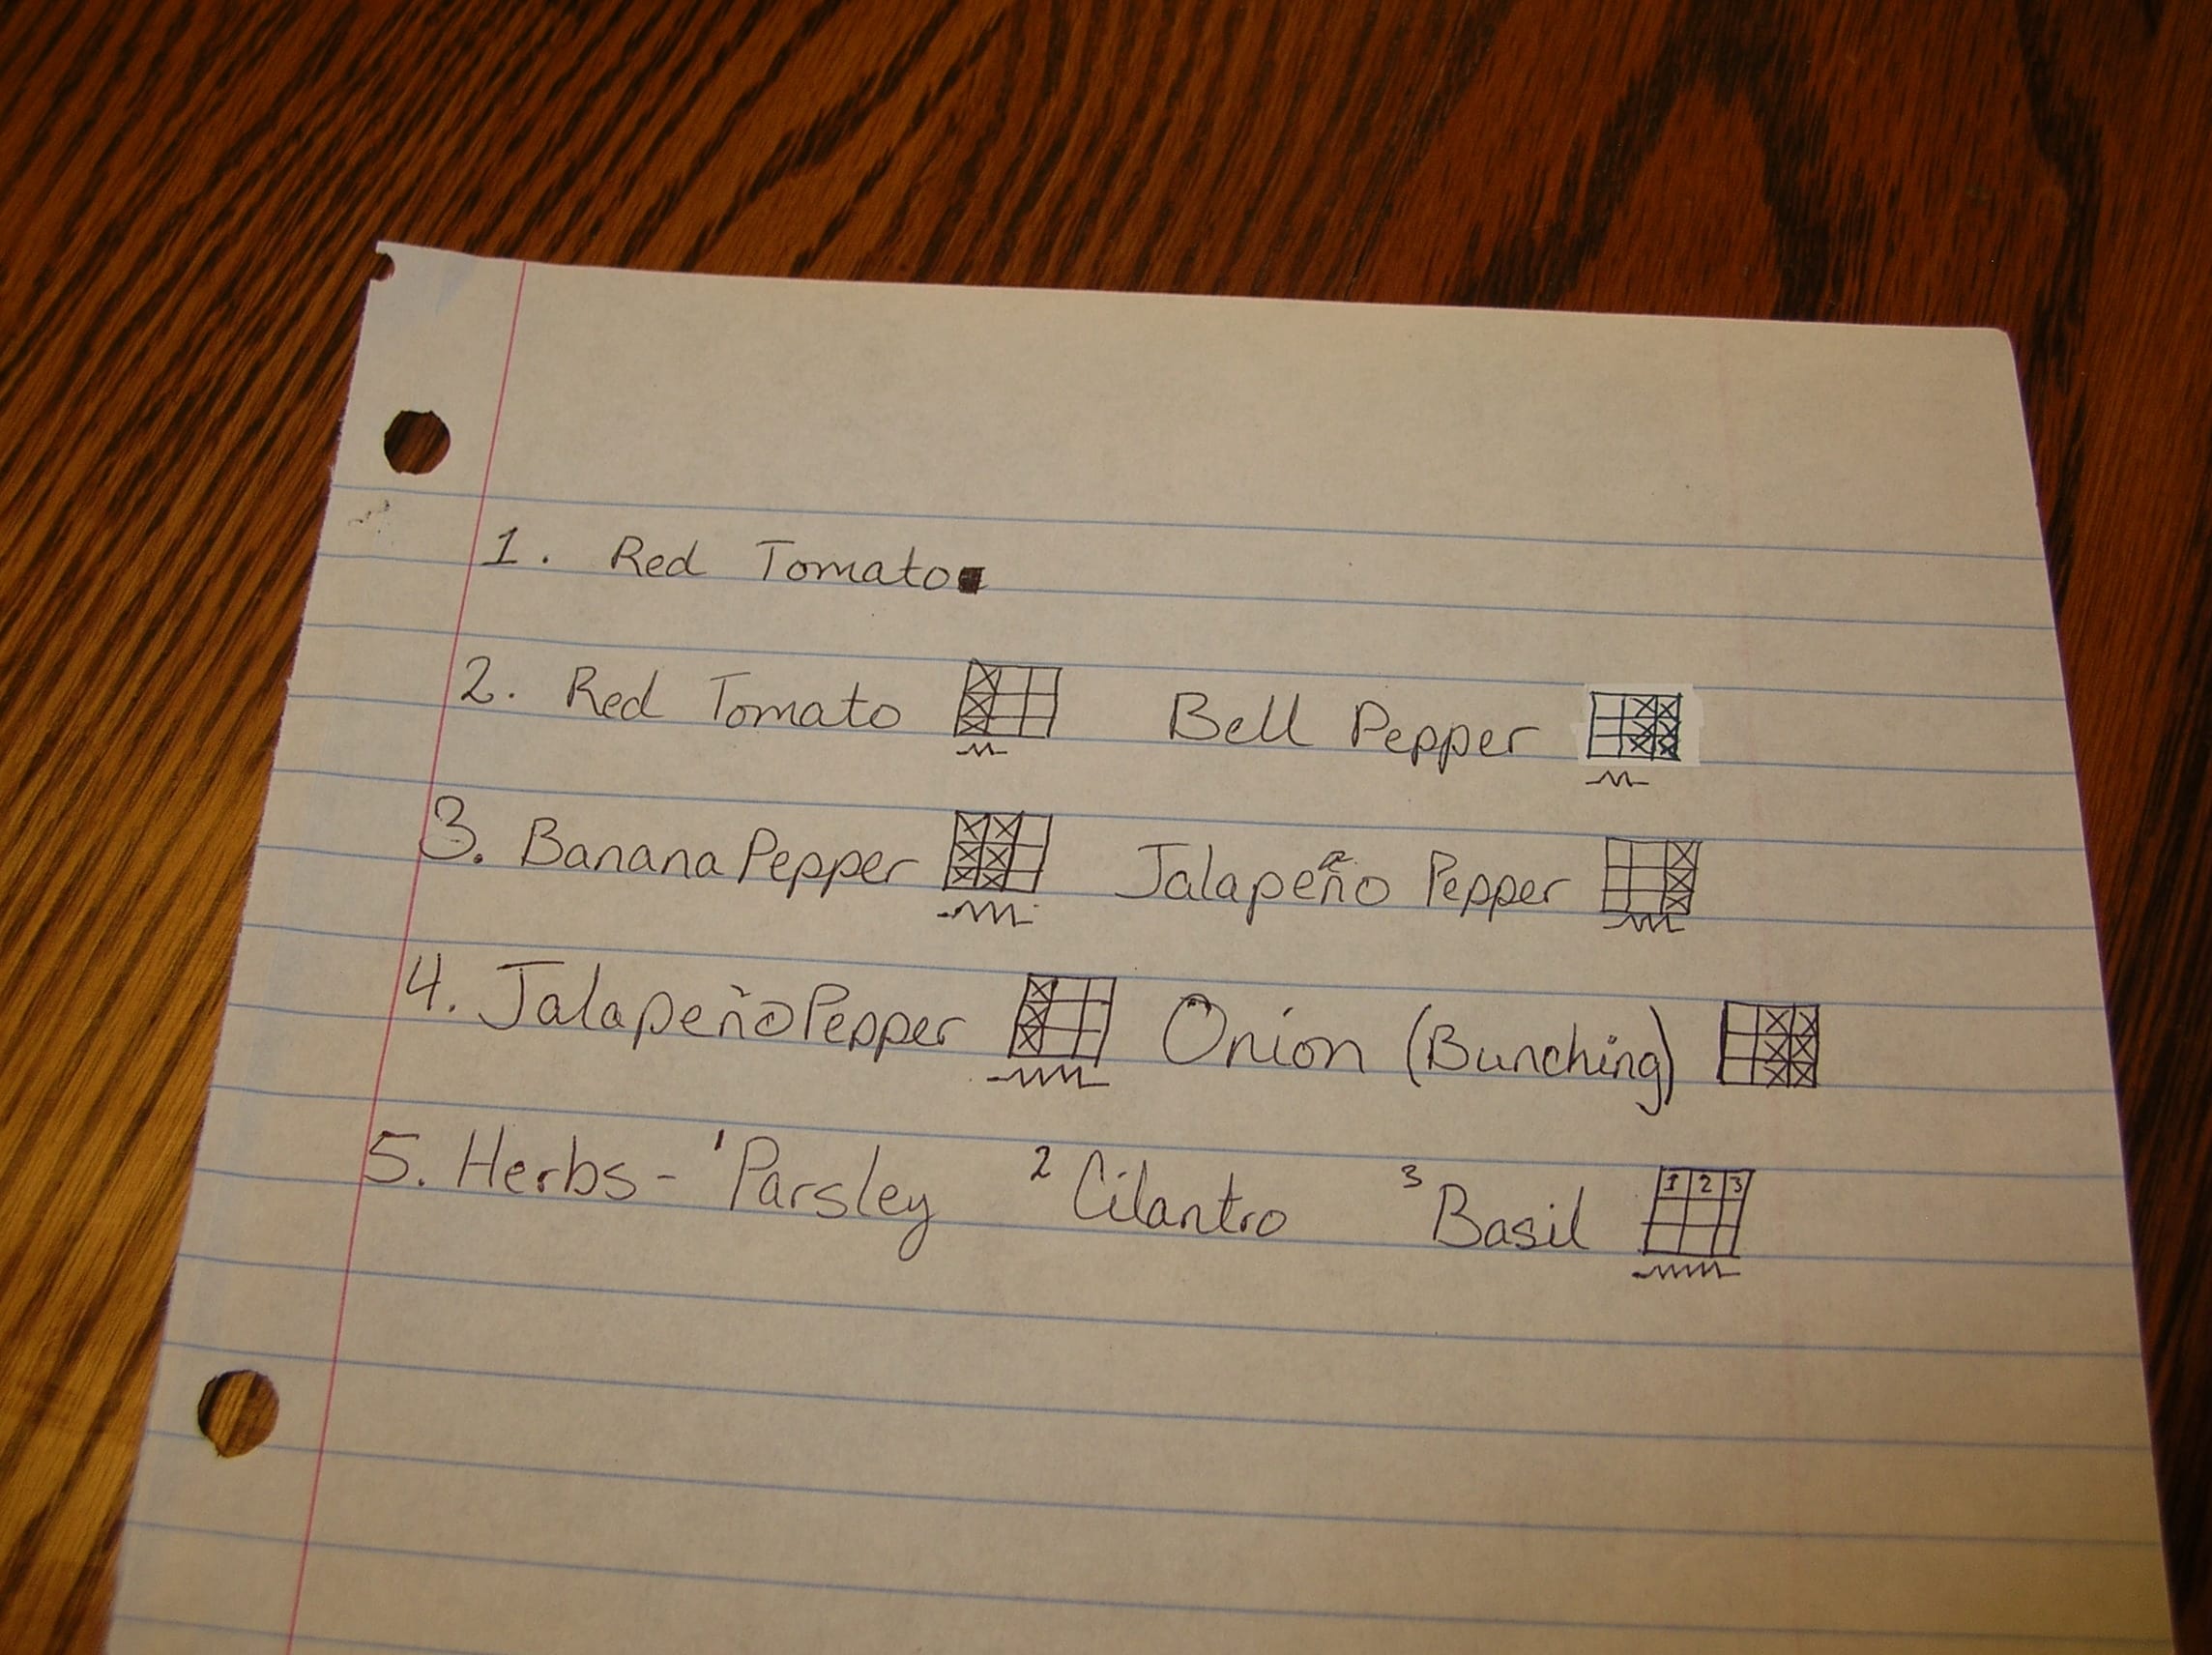 1. Red Tomato
2. Red Tomato Bell Pepper
3. Banana Pepper Jalapeño Pepper
4. Jalapeño Pepper Onion (Bunching)
5. Herbs - 1 Parsley 2 Cilantro 3 Basil 1 2 3